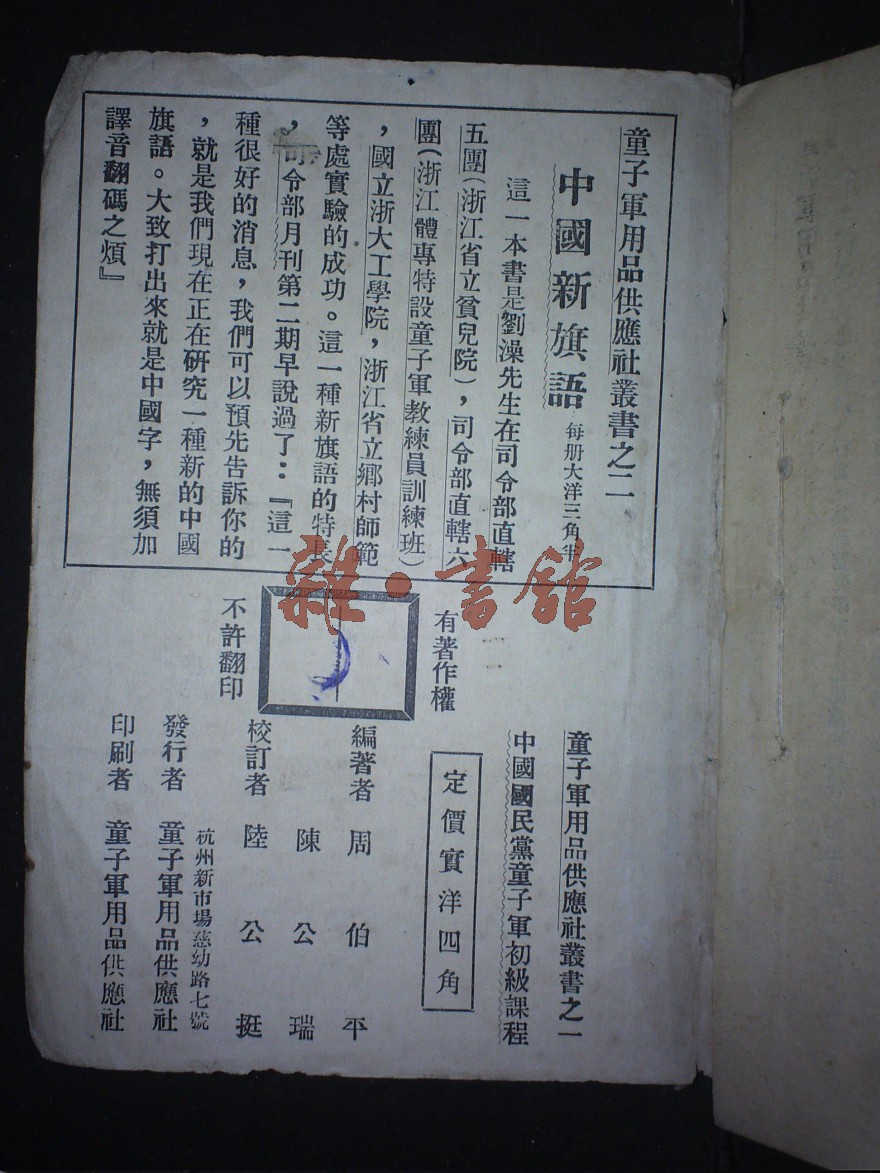 童子軍用品供應社叢書之二
中國新旗語 每册大洋三角半
這一本書是劉澡先生在司令部直轄
五團(浙江省立貧兒院),司令部直轄六
團(浙江體專特設童子軍教練員訓練班)
,國立浙大工學院,浙江省立鄉村師範
等處實驗的成功。這一種新旗語的特長
,司令部月刊第二期早說過了:『這一
種很好的消息,我們可以預先告訴你的
,就是我們現在正在研究一種新的中國
旗語。大致打出來就是中國字,無須加
譯音翻碼之煩』
有著作權
不許翻印
童子軍用品供應社叢書之一
中國國民黨童子軍初級課程
定價實洋四角
編著者 周伯平
陳公瑞
校訂者 陸公挺
杭州新市場慈幼路七號
發行者 童子軍用品供應社
印刷者 童子軍用品供應社
雜·書館